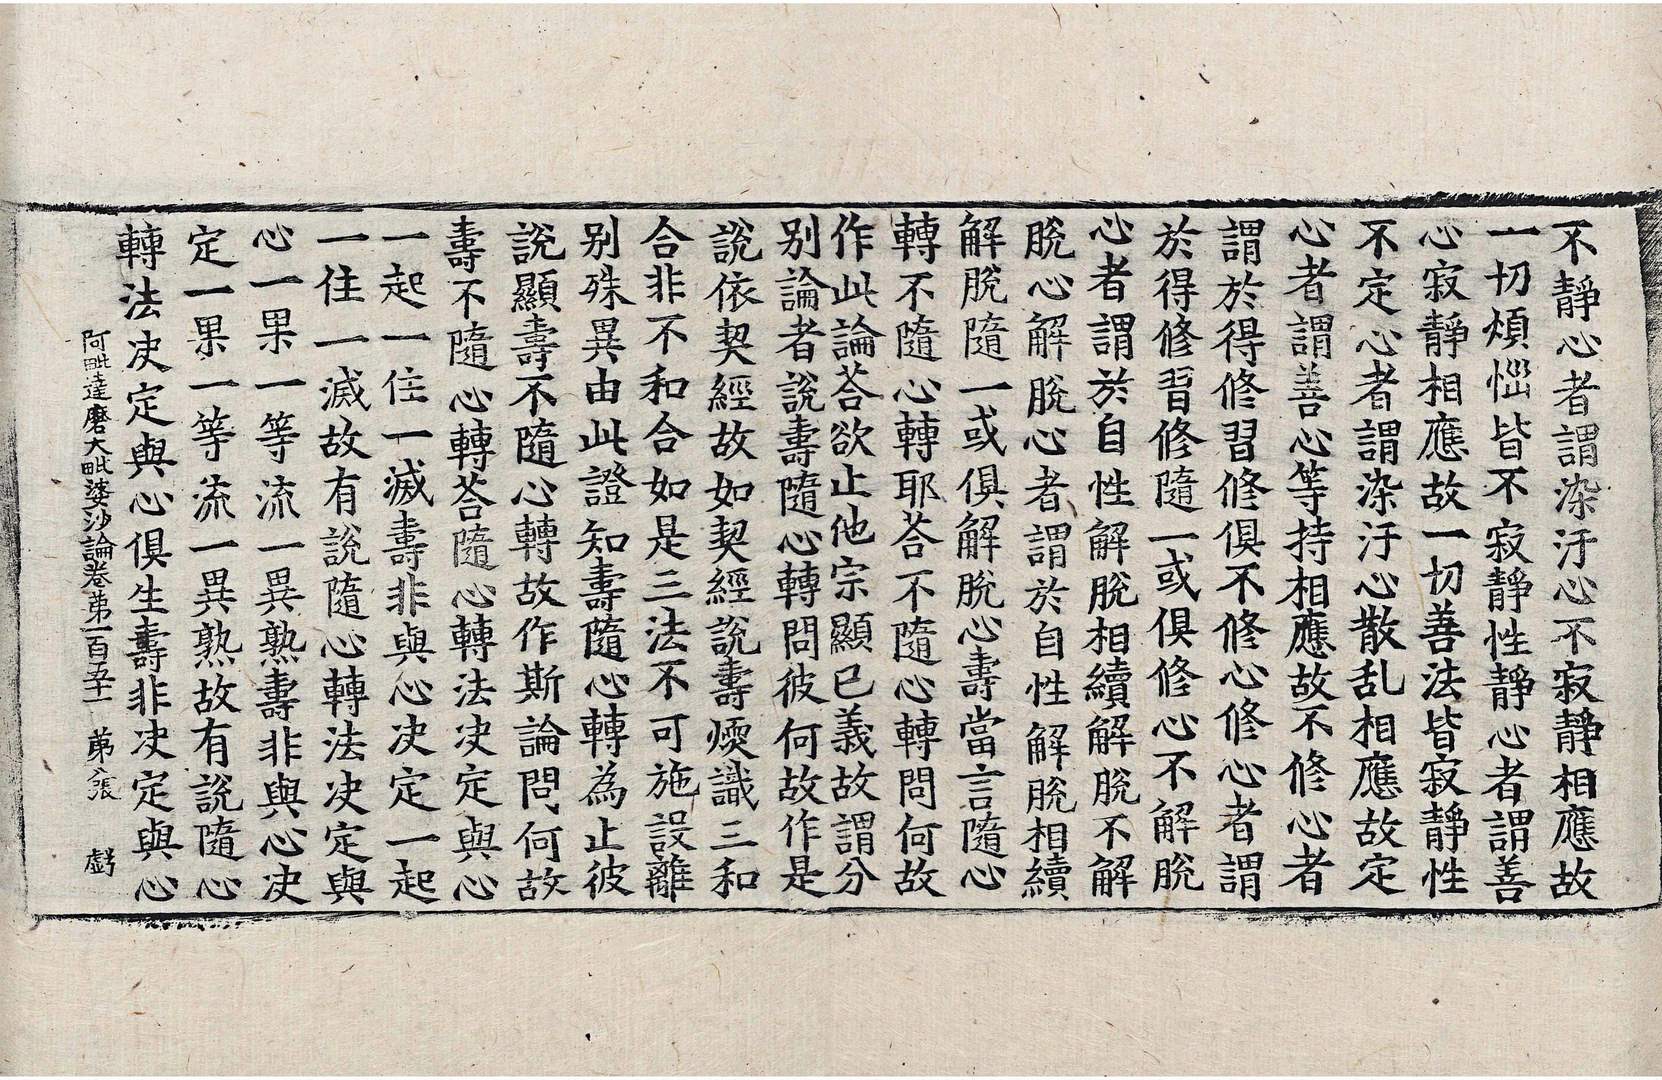 不靜心者謂染汙心不寂靜相應故
一切煩惱皆不寂靜性靜心者謂善
心寂靜相應故一切善法皆寂靜性
不定心者謂染汙心散乱相應故定
心者謂善心等持相應故不修心者
謂於得修習修俱不修心修心者謂
於得修習修隨一或俱修心不解脫
心者謂於自性解脫相續解脫不解
脫心解脫心者謂於自性解脫相續
解脫隨一或俱解脫心壽當言隨心
轉不隨心轉耶荅不隨心轉問何故
作此論荅欲止他宗顯已義故謂分
別論者說壽隨心轉問彼何故作是
說依契經故如契經說壽煖識三和
合非不和合如是三法不可施設離
別殊異由此證知壽隨心轉為止彼
說顯壽不隨心轉故作斯論問何故
壽不隨心轉荅隨心轉法決定與心
一起一住一滅壽非與心決定一起
一住一滅故有說隨心轉法決定與
心一果一等流一異熟壽非與心決
定一果一等流一異熟故有說隨心
轉法決定與心俱生壽非決定與心
阿毗達磨大毗婆沙論卷第一百五十一 第八張 虧